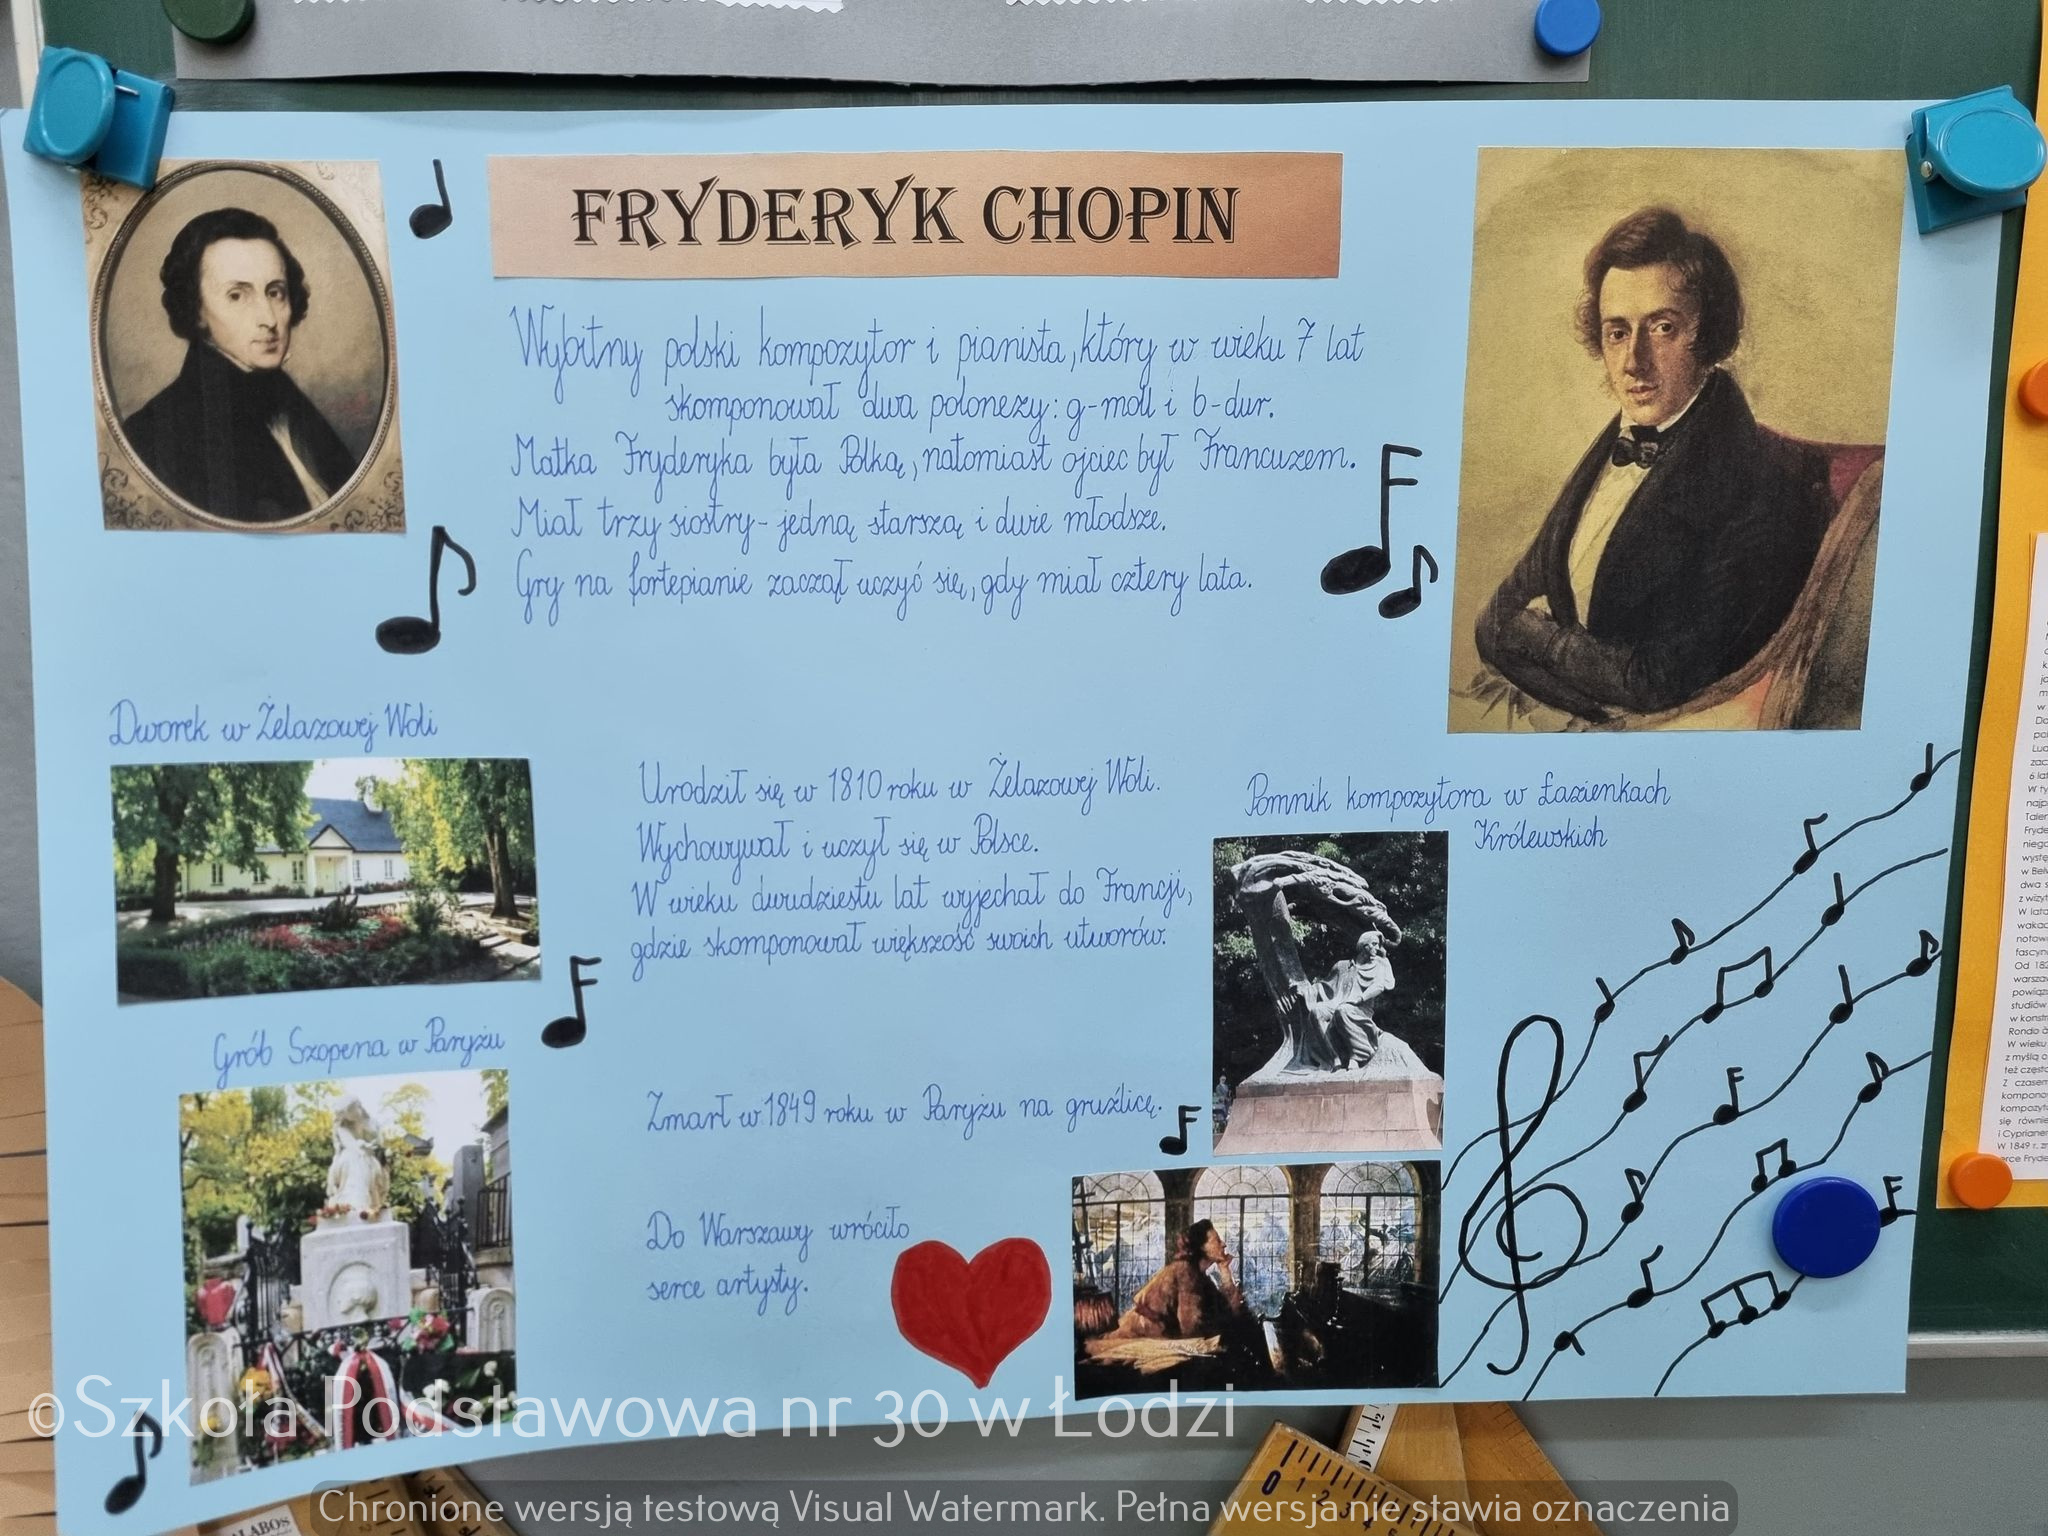 FRYDERYK CHOPIN
Wybitny polski kompozytor i pianista, który w wieku 7 lat
skomponował dwa polonezy: g-moll i b-dur.
Matka Fryderyka była Polką, natomiast ojciec był Francuzem.
Miał trzy siostry - jedną starszą i dwie młodsze.
Gry na fortepianie zaczął uczyć się, gdy miał cztery lata.
Dworek w Żelazowej Woli
Urodził się w 1810 roku w Żelazowej Woli.
Wychowywał i uczył się w Polsce.
W wieku dwudziestu lat wyjechał do Francji,
gdzie skomponował większość swoich utworów.
Pomnik kompozytora w Łazienkach
Królewskich
Grób Szopena w Paryżu
Zmarł w 1849 roku w Paryżu na gruźlicę.
Do Warszawy wróciło
serce artysty.
©Szkoła Podstawowa nr 30 w Łodzi
Chronione wersją testową Visual Watermark. Pełna wersja nie stawia oznaczenia